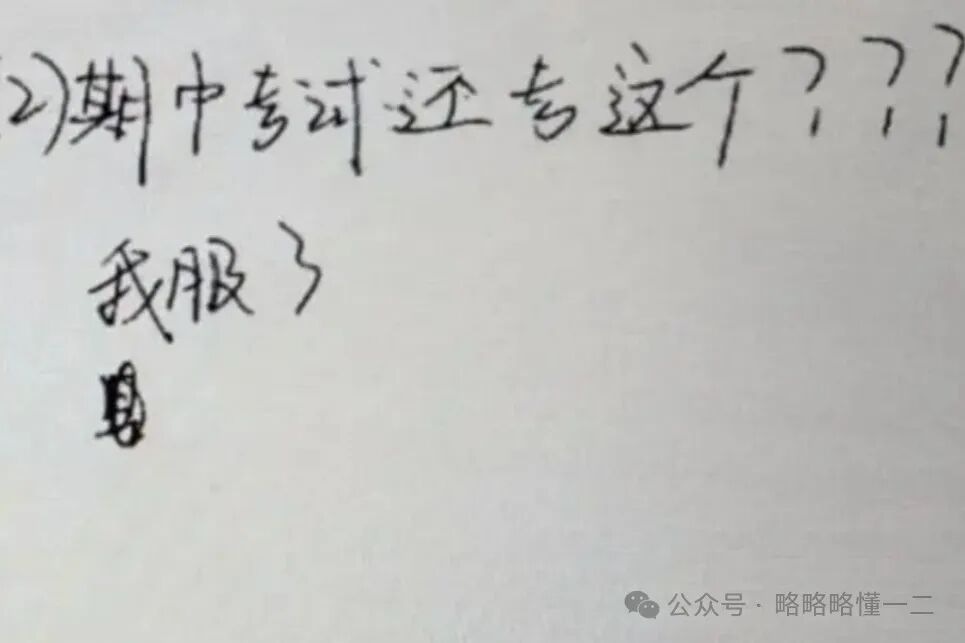 (2)期中考试还考这个???
我服了
公众号·略略略懂一二